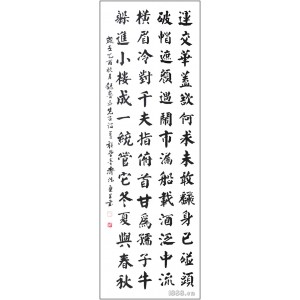 運交華蓋欲何求未敢翻身已碰頭
破帽遮顏過鬧市漏船載酒泛中流
橫眉冷對千夫指俯首甘為孺子牛
躲進小樓成一統管它冬夏與春秋